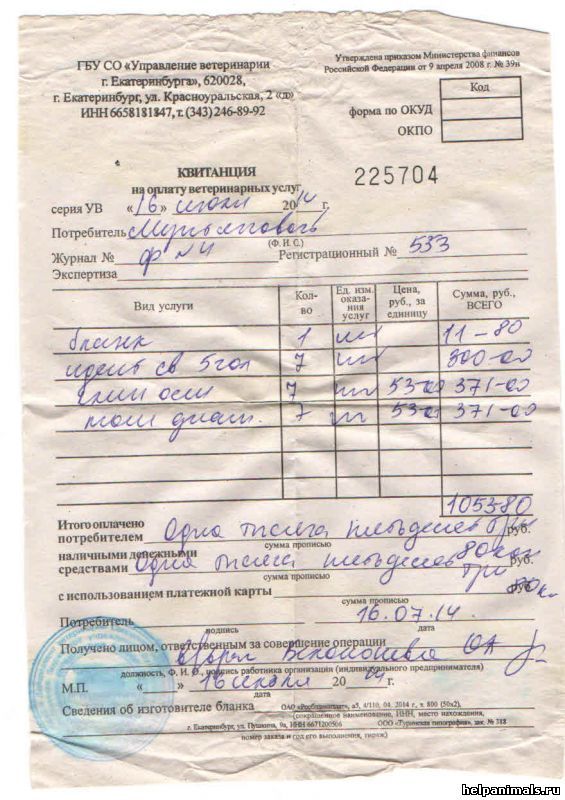 ГБУ СО «Управление ветеринарии
г. Екатеринбурга», 620028,
г. Екатеринбург, ул. Красноуральская, 2 «д»
ИНН 6658181847, т. (343) 246-89-92
Утверждена приказом Министерства финансов
Российской Федерации от 9 апреля 2008 г. № 39н
Код
форма по ОКУД
ОКПО
КВИТАНЦИЯ
на оплату ветеринарных услуг
225704
серия УВ «16» июля 2014 г.
Потребитель
(Ф. И. О.)
Журнал № ф №4 Регистрационный № 533
Экспертиза
Вид услуги Кол-во Ед. изм. оказания услуг Цена, руб., за единицу Сумма, руб., ВСЕГО
бланк 1 шт 11-80
5 гол 7 шт 300-00
клин осм 7 шт 53-00 371-00
7 шт 53-00 371-00
1053-80
Итого оплачено
потребителем Одна тысяча пятьдесят три руб.
сумма прописью
наличными денежными 80 коп
средствами Одна тысяча пятьдесят три руб.
сумма прописью
с использованием платежной карты руб. 80 коп
сумма прописью
Потребитель 16.07.14
подпись дата
Получено лицом, ответственным за совершение операции
должность, Ф. И. О., подпись работника организации (индивидуального предпринимателя)
М.П. « » 16 июля 2014 г.
дата
Сведения об изготовителе бланка ОАО «Росбланкиздат», а5, 4/110, 04. 2014 г., т. 800 (50х2),
(сокращенное наименование, ИНН, место нахождения,
г. Екатеринбург, ул. Пушкина, 9а, ИНН 6671200506 ООО «Туринская типография», зак. № 318
номер заказа и год его выполнения, тираж)
helpanimals.ru